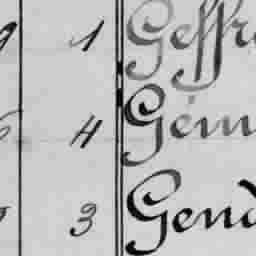 1 Geffr
4 Gém
3 Gend